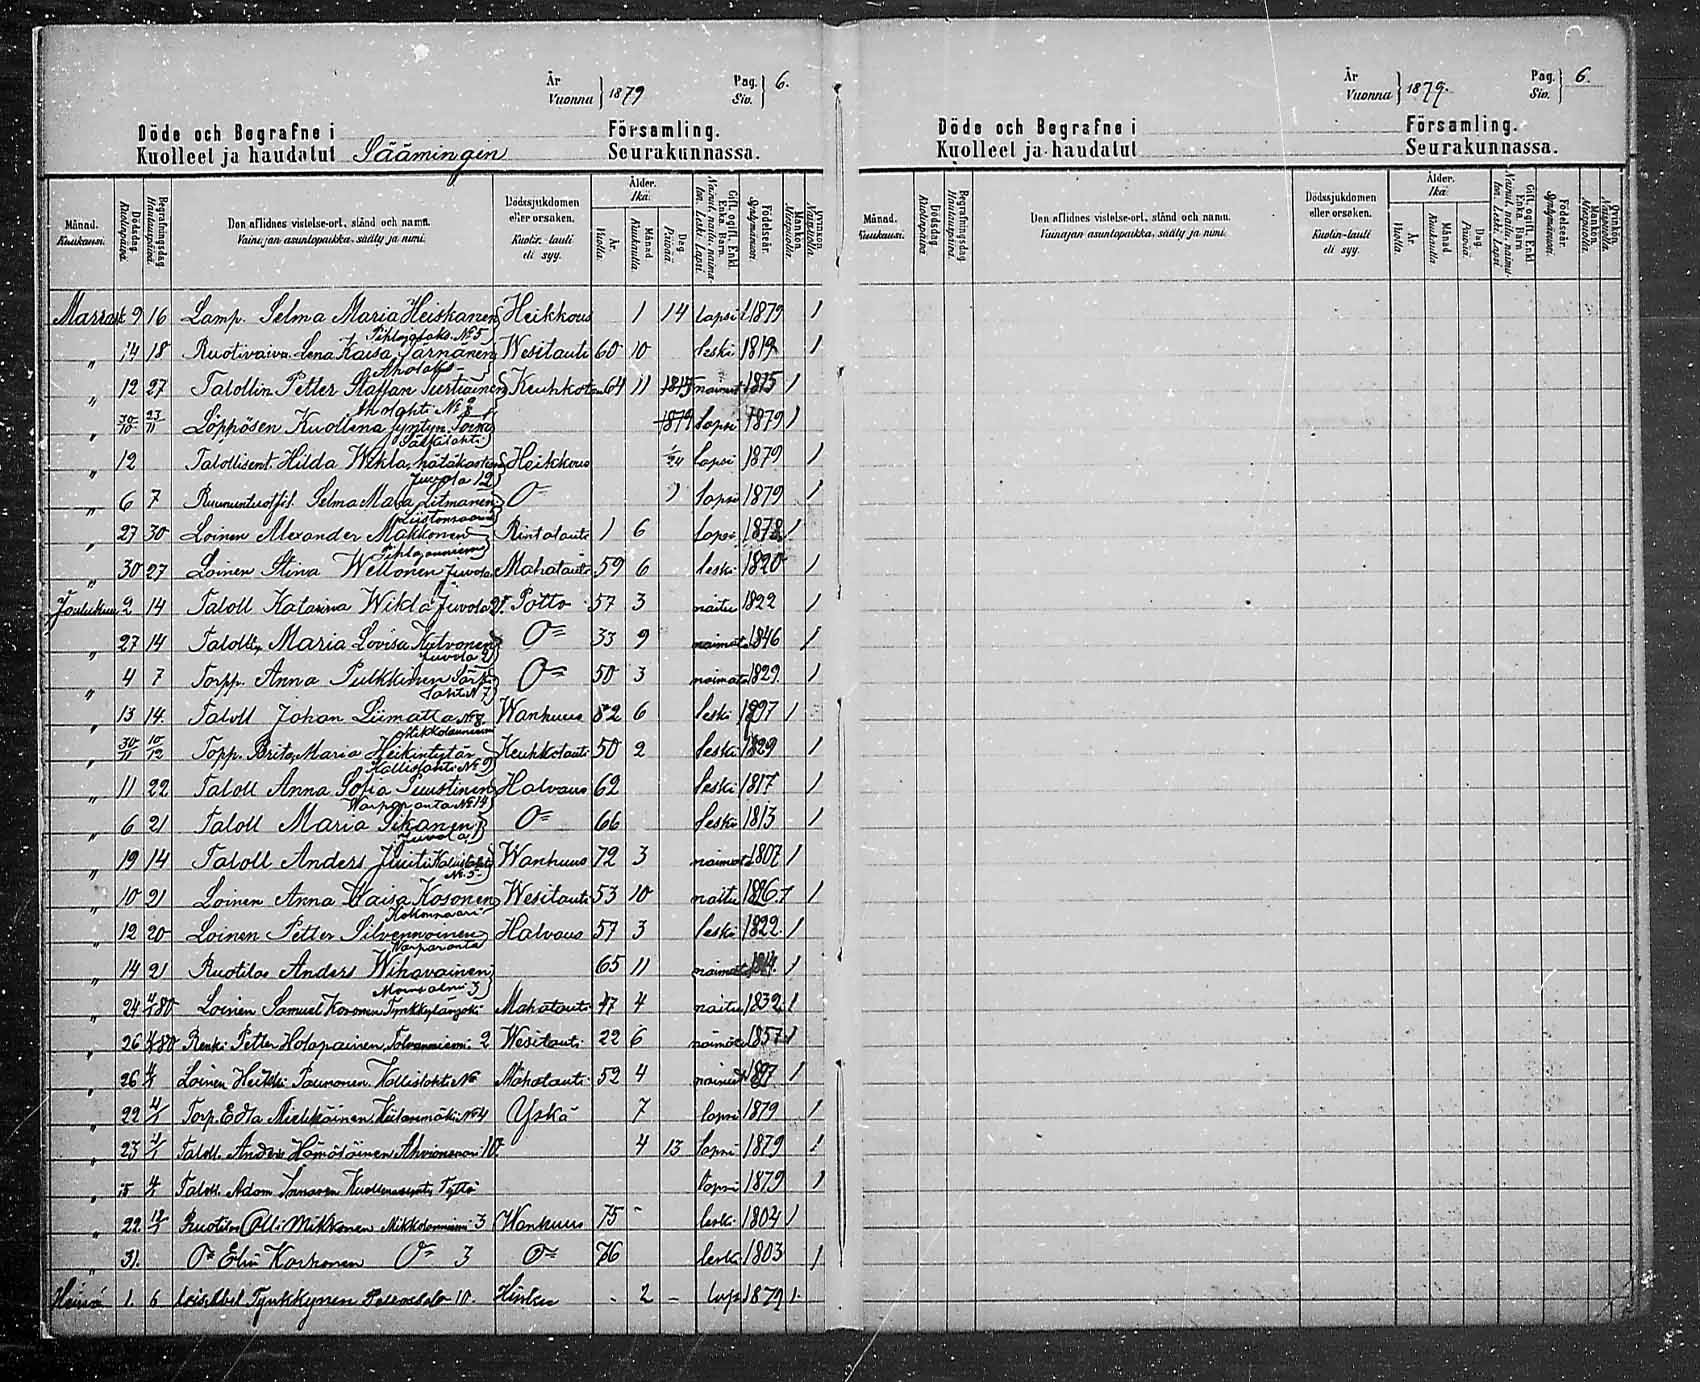 År Vuonna } 1879 Pag. Siv. } 6.
Döde och Begrafne i Församling.
Kuolleet ja haudatut Säämingin Seurakunnassa.
Månad. Kuukausi. Dödsdag Kuolinpäivä. Begrafningsdag Hautauspäivä. Den aflidnes vistelse-ort, stånd och namn. Vainajan asuntopaikka, sääty ja nimi. Dödssjukdomen eller orsaken. Kuolin-tauti eli syy. Ålder. Ikä: År. Vuotta. Månad Kuukautta Dag Päivää. Gift, ogift, Enkl. Enka, Barn. Nainut, naitu, naimaton, Leski, Lapsi. Födelseår. Syntymävuosi. Mankön. Miespuolta. Qvinkön. Naispuolta.
Marrask 9 16 Lamp. Selma Maria Heiskanen Heikkous 1 14 lapsi 1879 1
Pihlajalaks. No 5
" 14 18 Ruotivaiva. Lena Kaisa Särnänen Wesitauti 60 10 leski 1819 1
" 12 27 Talollin Petter Staffan Tiertiäinen Keuhkot. 64 11 1815 nainut 1815 1
" 30/10 23/11 Löppösen Kuollena syntyn. 1879 lapsi 1879 1
" 12 Talollisent. Hilda Wikla, hätäkastettu Heikkous 1/24 lapsi 1879 1
Juvola 12
" 6 7 Selma Maria Litmanen O= 1 lapsi 1879 1
" 27 30 Loinen Alexander Makkonen Rintatauti 1 6 lapsi 1878 1
Pihlajaniemi
" 30 27 Loinen Stina Wellonen Juvola Mahatauti 59 6 leski 1820 1
Joulukuu 2 14 Taloll Katarina Wikla Juvola 21 Polto 57 3 naitu 1822 1
" 27 14 Talollis. Maria Lovisa Kutvonen O= 33 9 naimato 1846 1
Juvola 2
" 4 7 Torpp. Anna Pulkkinen Särki O= 50 3 naimato 1829. 1
laht. N 7
" 13 14. Taloll Johan Liimatta No 8. Wanhuus 82 6 leski 1797 1
Mikkolanniemi
" 30/11 10/12 Topp. Brita Maria Heikintytär Keuhkotauti 50 2 leski 1829 1
Kallislahti No 9
" 11 22 Taloll Anna Sofia Puustinen Halvaus 62 leski 1817 1
Warparanta No 14
" 6 21 Taloll Maria Sikanen O= 66 leski 1813 1
Juvola 1
" 19 14 Taloll Anders Juuti Kallislahti Wanhuus 72 3 naimato 1807 1
No. 5
" 10 21 Loinen Anna Kaisa Kosonen Wesitauti 53 10 naitu 1826 1
Kokonsaari
" 12 20 Loinen Petter Silvennoinen Halvaus 57 3 leski 1822. 1
Warparanta
" 14 21 Ruotilas Anders Wihavainen 65 11 naimato 1814. 1
Moinsalmi 3
" 24 4/1 80 Loinen Samuel Kosonen Tynkkylänjoki Mahatauti 47 4 naitu 1832 1
" 26 4/1 80 Renki Petter Holopainen, Tolvanniemi. 2 Wesitauti 22 6 naimato 1857 1
" 26 4/1 Loinen Heikki Paunonen Kallislahti No Mahatauti 52 4 nainut 1827. 1
" 22 4/1 Torp. Edla Miettinen Keilanmäki No 4 Yskä 7 lapsi 1879 1
" 23 4/1 Taloll. Anders Hämäläinen Ahvionsaari 10. 4 13 lapsi 1879 1
" 5 4/1 Taloll. Adam Innanen Kuollenasynt. Tyttö lapsi 1879 1
" 22. 12/1 Ruotilas Olli Mikkonen Mikkolanniemi 3 Wanhuus 75 - leski 1804 1
" 31. O= Elin Karhonen O= 3 O= 76 leski 1803 1
1. 6 Tynkkynen 10. - 2 - laps 1879 1.
År Vuonna } 1879. Pag. Siv. } 6.
Döde och Begrafne i Församling.
Kuolleet ja haudatut Seurakunnassa.
Månad. Kuukausi. Dödsdag Kuolinpäivä. Begrafningsdag Hautauspäivä. Den aflidnes vistelse-ort, stånd och namn. Vainajan asuntopaikka, sääty ja nimi. Dödssjukdomen eller orsaken. Kuolin-tauti eli syy. Ålder. Ikä: År. Vuotta. Månad Kuukautta Dag Päivää. Gift, ogift, Enkl. Enka, Barn. Nainut, naitu, naimaton, Leski, Lapsi. Födelseår. Syntymävuosi. Mankön. Miespuolta. Qvinkön. Naispuolta.